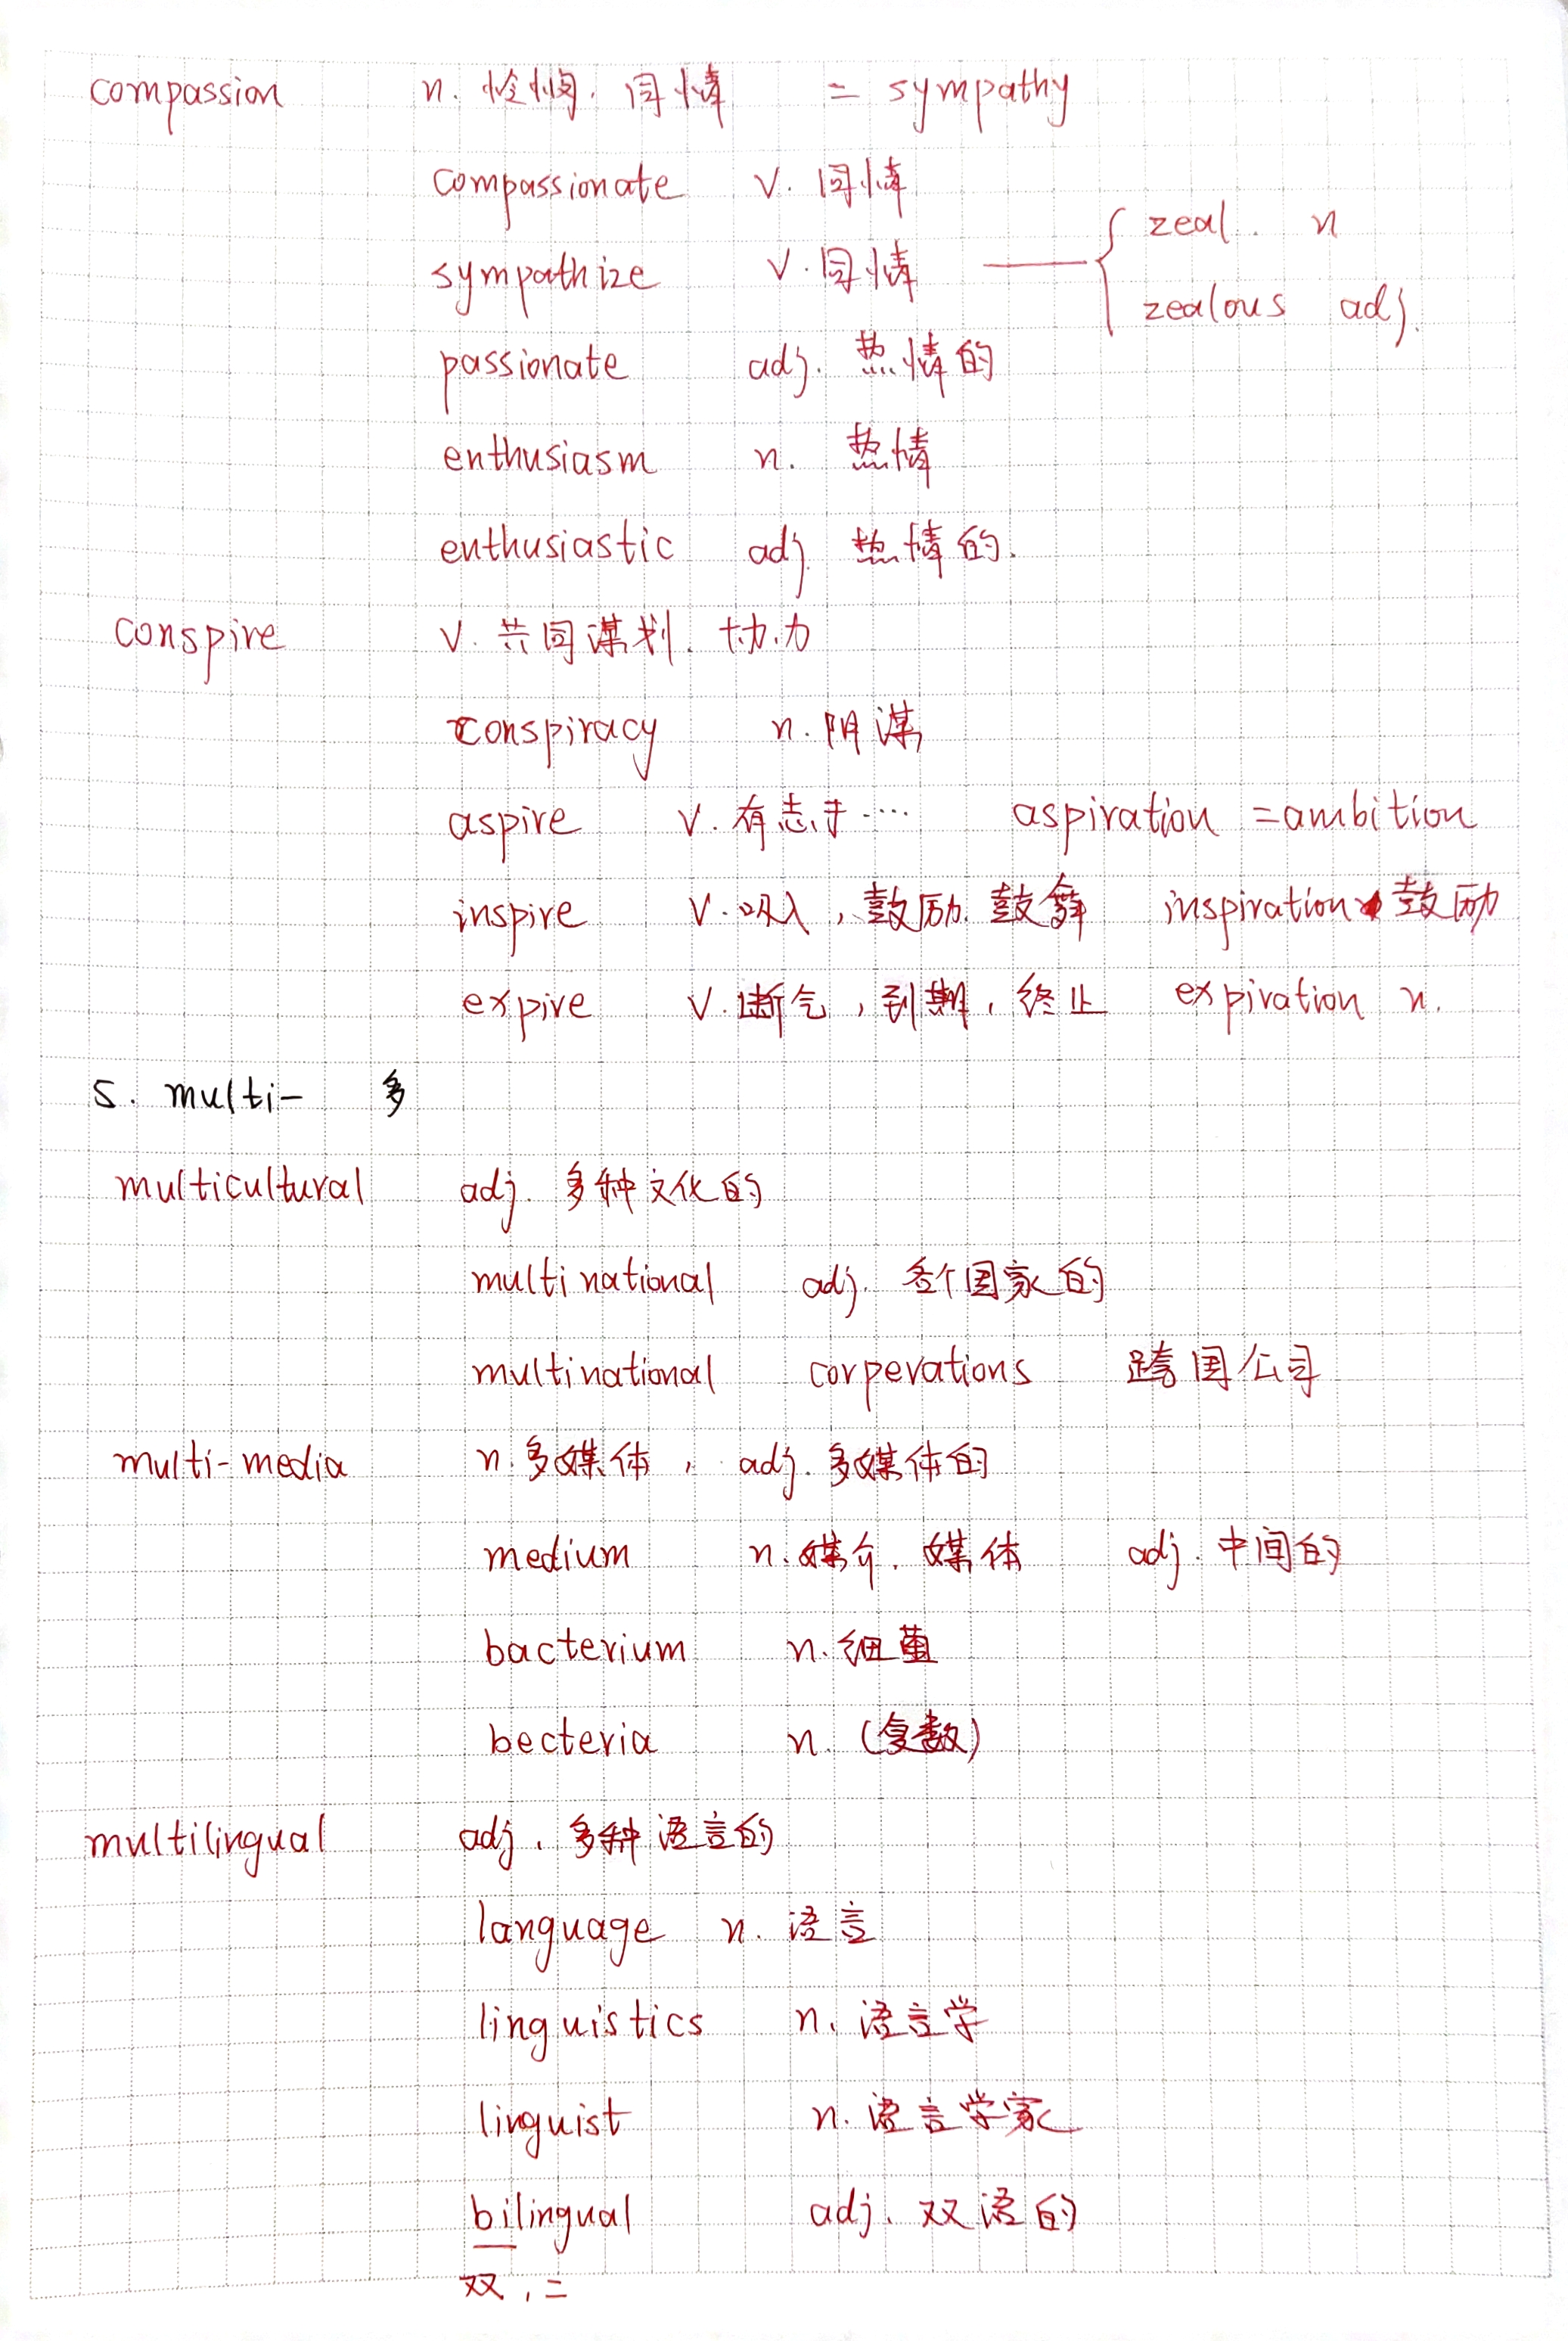 compassion n. 怜悯. 同情 = sympathy
compassionate v. 同情
zeal. n
sympathize v. 同情
zealous adj.
passionate adj. 热情的
enthusiasm n. 热情
enthusiastic adj. 热情的.
conspire v. 共同谋划. 协力
conspiracy n. 阴谋
aspire v. 有志于…. aspiration = ambition
inspire v. 吸入, 鼓励. 鼓舞 inspiration 鼓励
expire v. 断气, 到期, 终止 expiration n.
5. multi- 多
multicultural adj. 多种文化的
multinational adj. 各个国家的
multinational corperations 跨国公司
multi-media n. 多媒体, adj. 多媒体的
medium n. 媒介. 媒体 adj. 中间的
bacterium n. 细菌
becteria n. (复数)
multilingual adj. 多种语言的
language n. 语言
linguistics n. 语言学
linguist n. 语言学家
bilingual adj. 双语的
双, 二